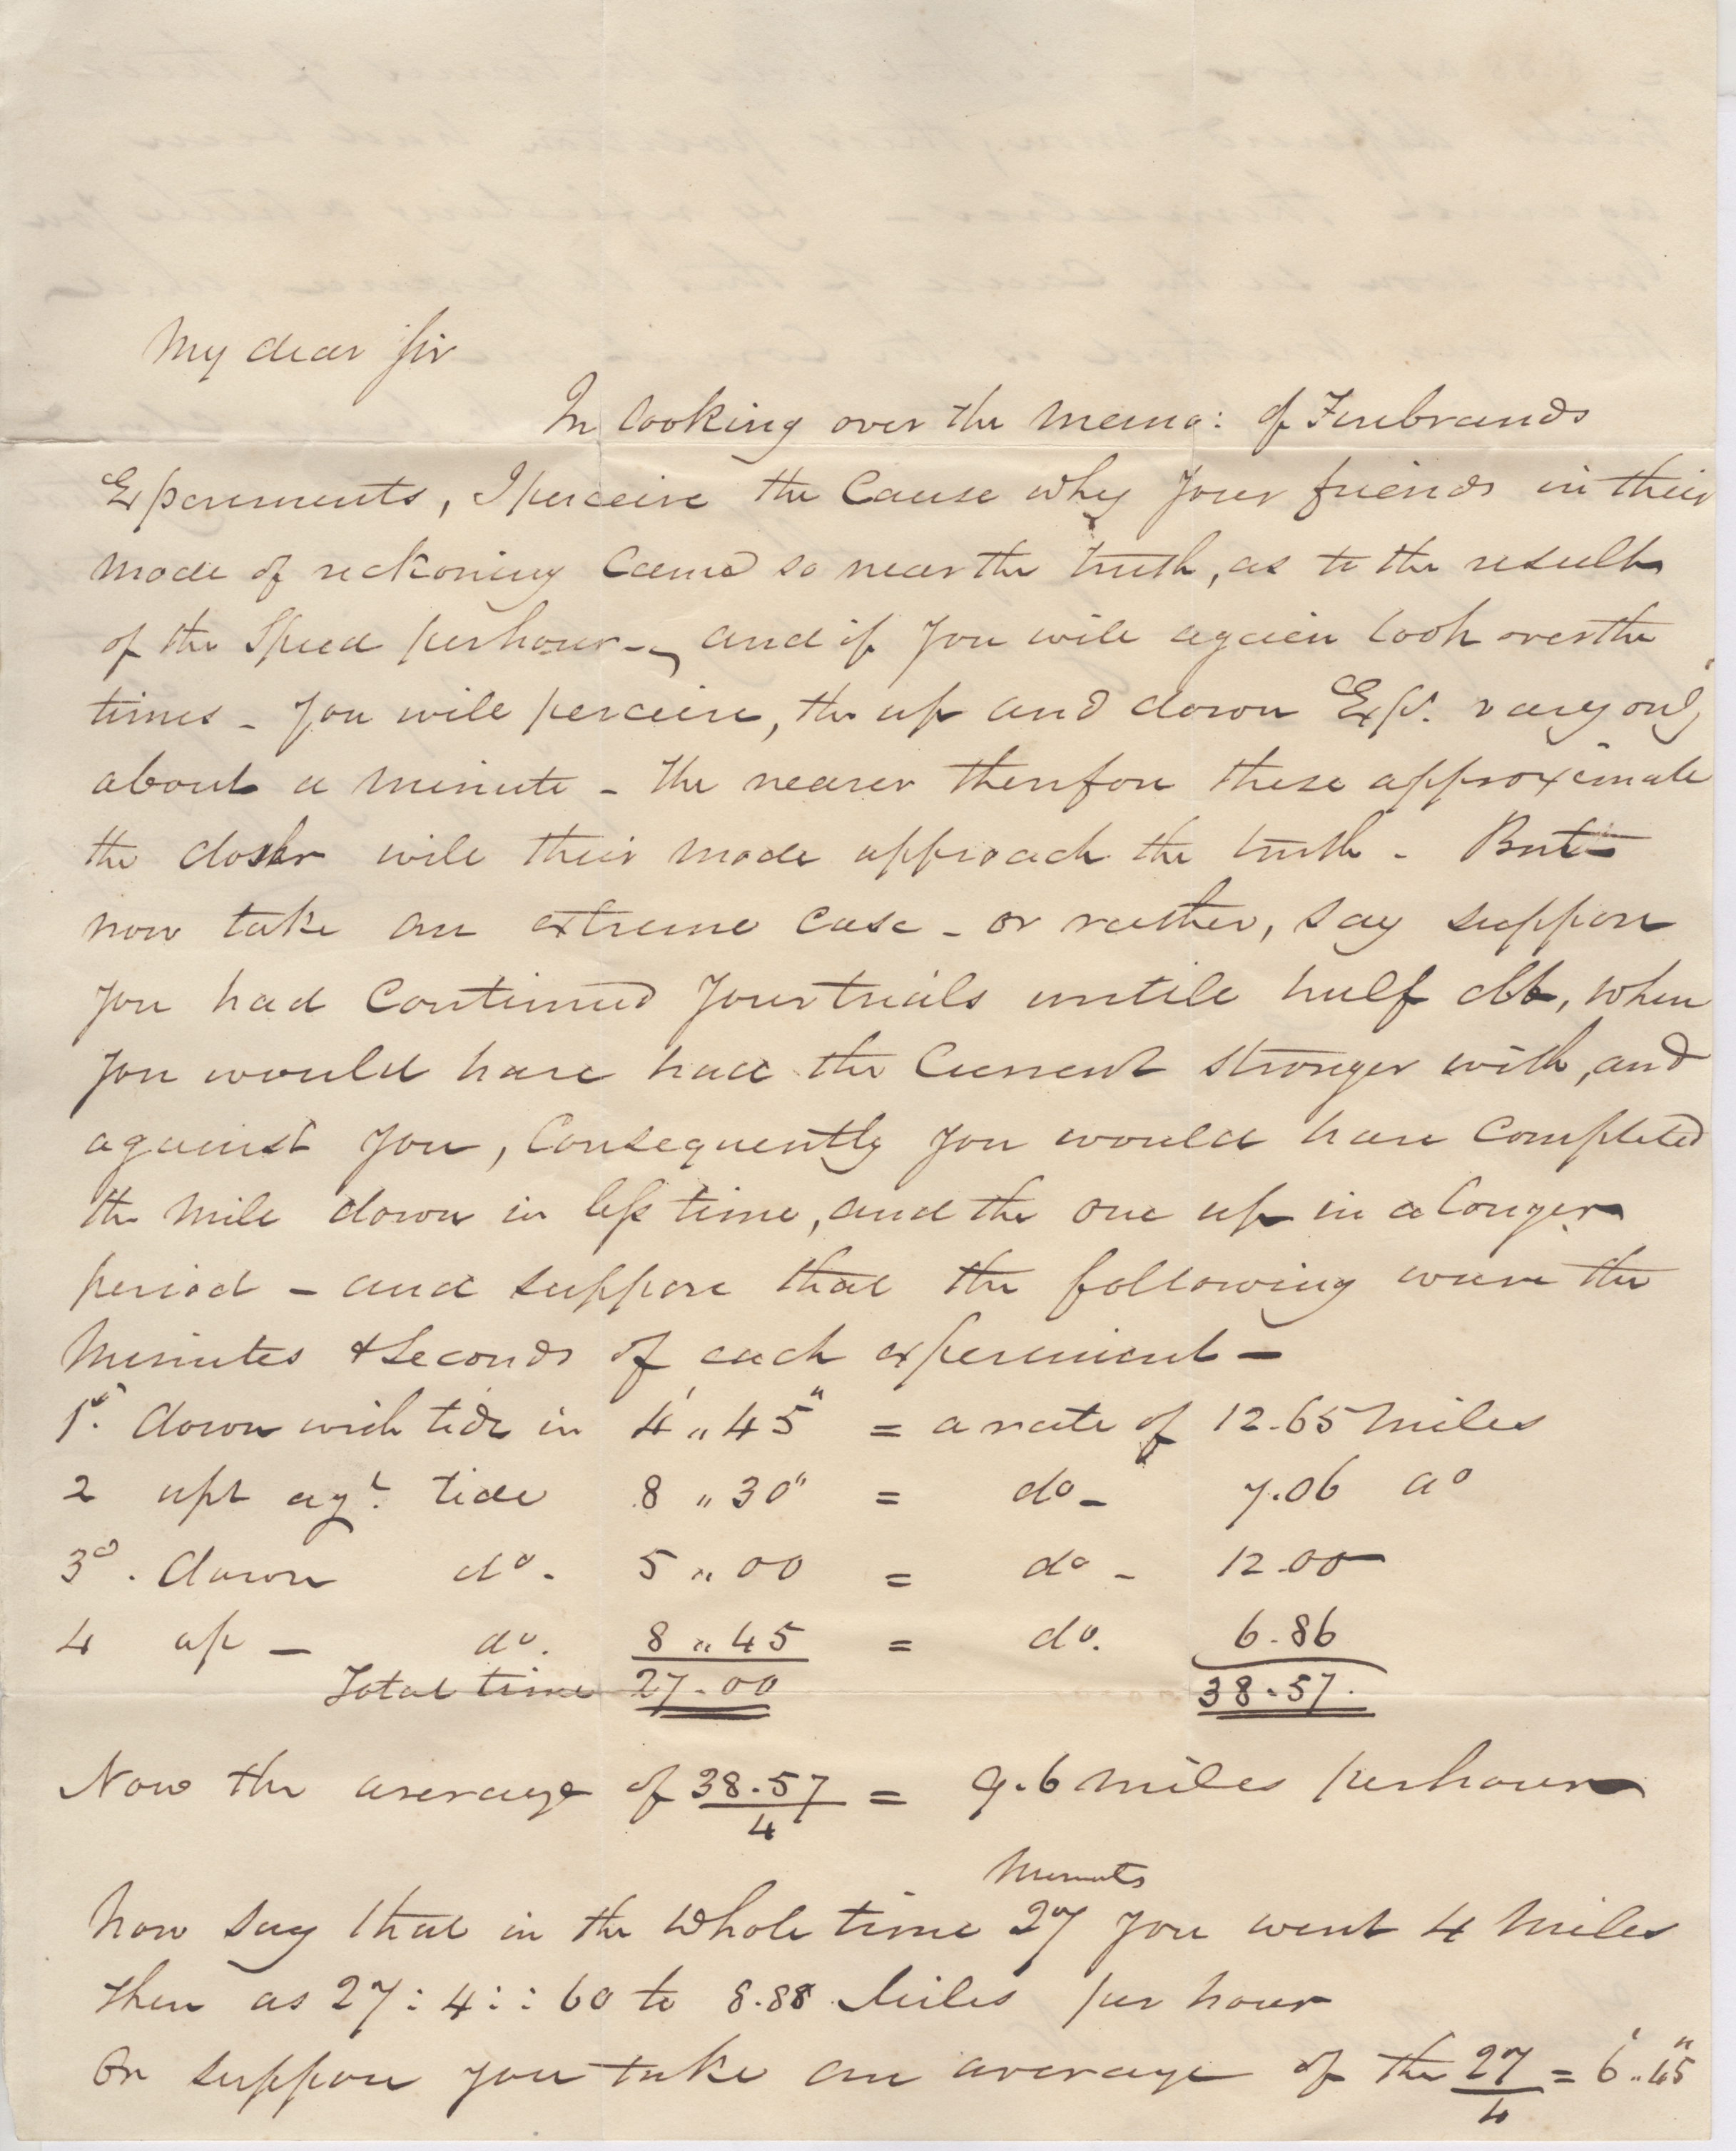 My dear Sir
In looking over the memo: of Firebrands
Experements, I perceive the Cause why your friends in their
mode of reckoning Came so near the truth, as to the result
of the Speed per hour -, and if you will again look over the
times - you will perceive, the up and down Exp. vary only
about a minute - the nearer therefore these approximate
the closer will their mode approach the truth - But
now take an extreme case - or rather, say suppose
you had Continued your trials untill half ebb, when
you would have had the Current stronger with, and
against you, Consequently you would have Completed
the mile down in less time, and the one up in a longer
period - and suppose that the following were the
Minutes & Seconds of each experiment -
1st. down with tide in 4' ,, 45" = a rate of 12.65 Miles
2 up agt. tide 8 ,, 30" = do - 7.06 do
3d. down do. 5 ,, 00 = do - 12.00
4 up - do. 8 ,, 45 = do. 6.86
Total time 27.00 38.57.
Now the average of 38.57/4 = 9.6 miles per hour
Minuts
Now say that in the whole time 27 you went 4 Miles
then as 27 : 4 : : 60 to 8.88 Miles per hour
Or suppose you take an average of the 27/4 = 6' ,, 45"